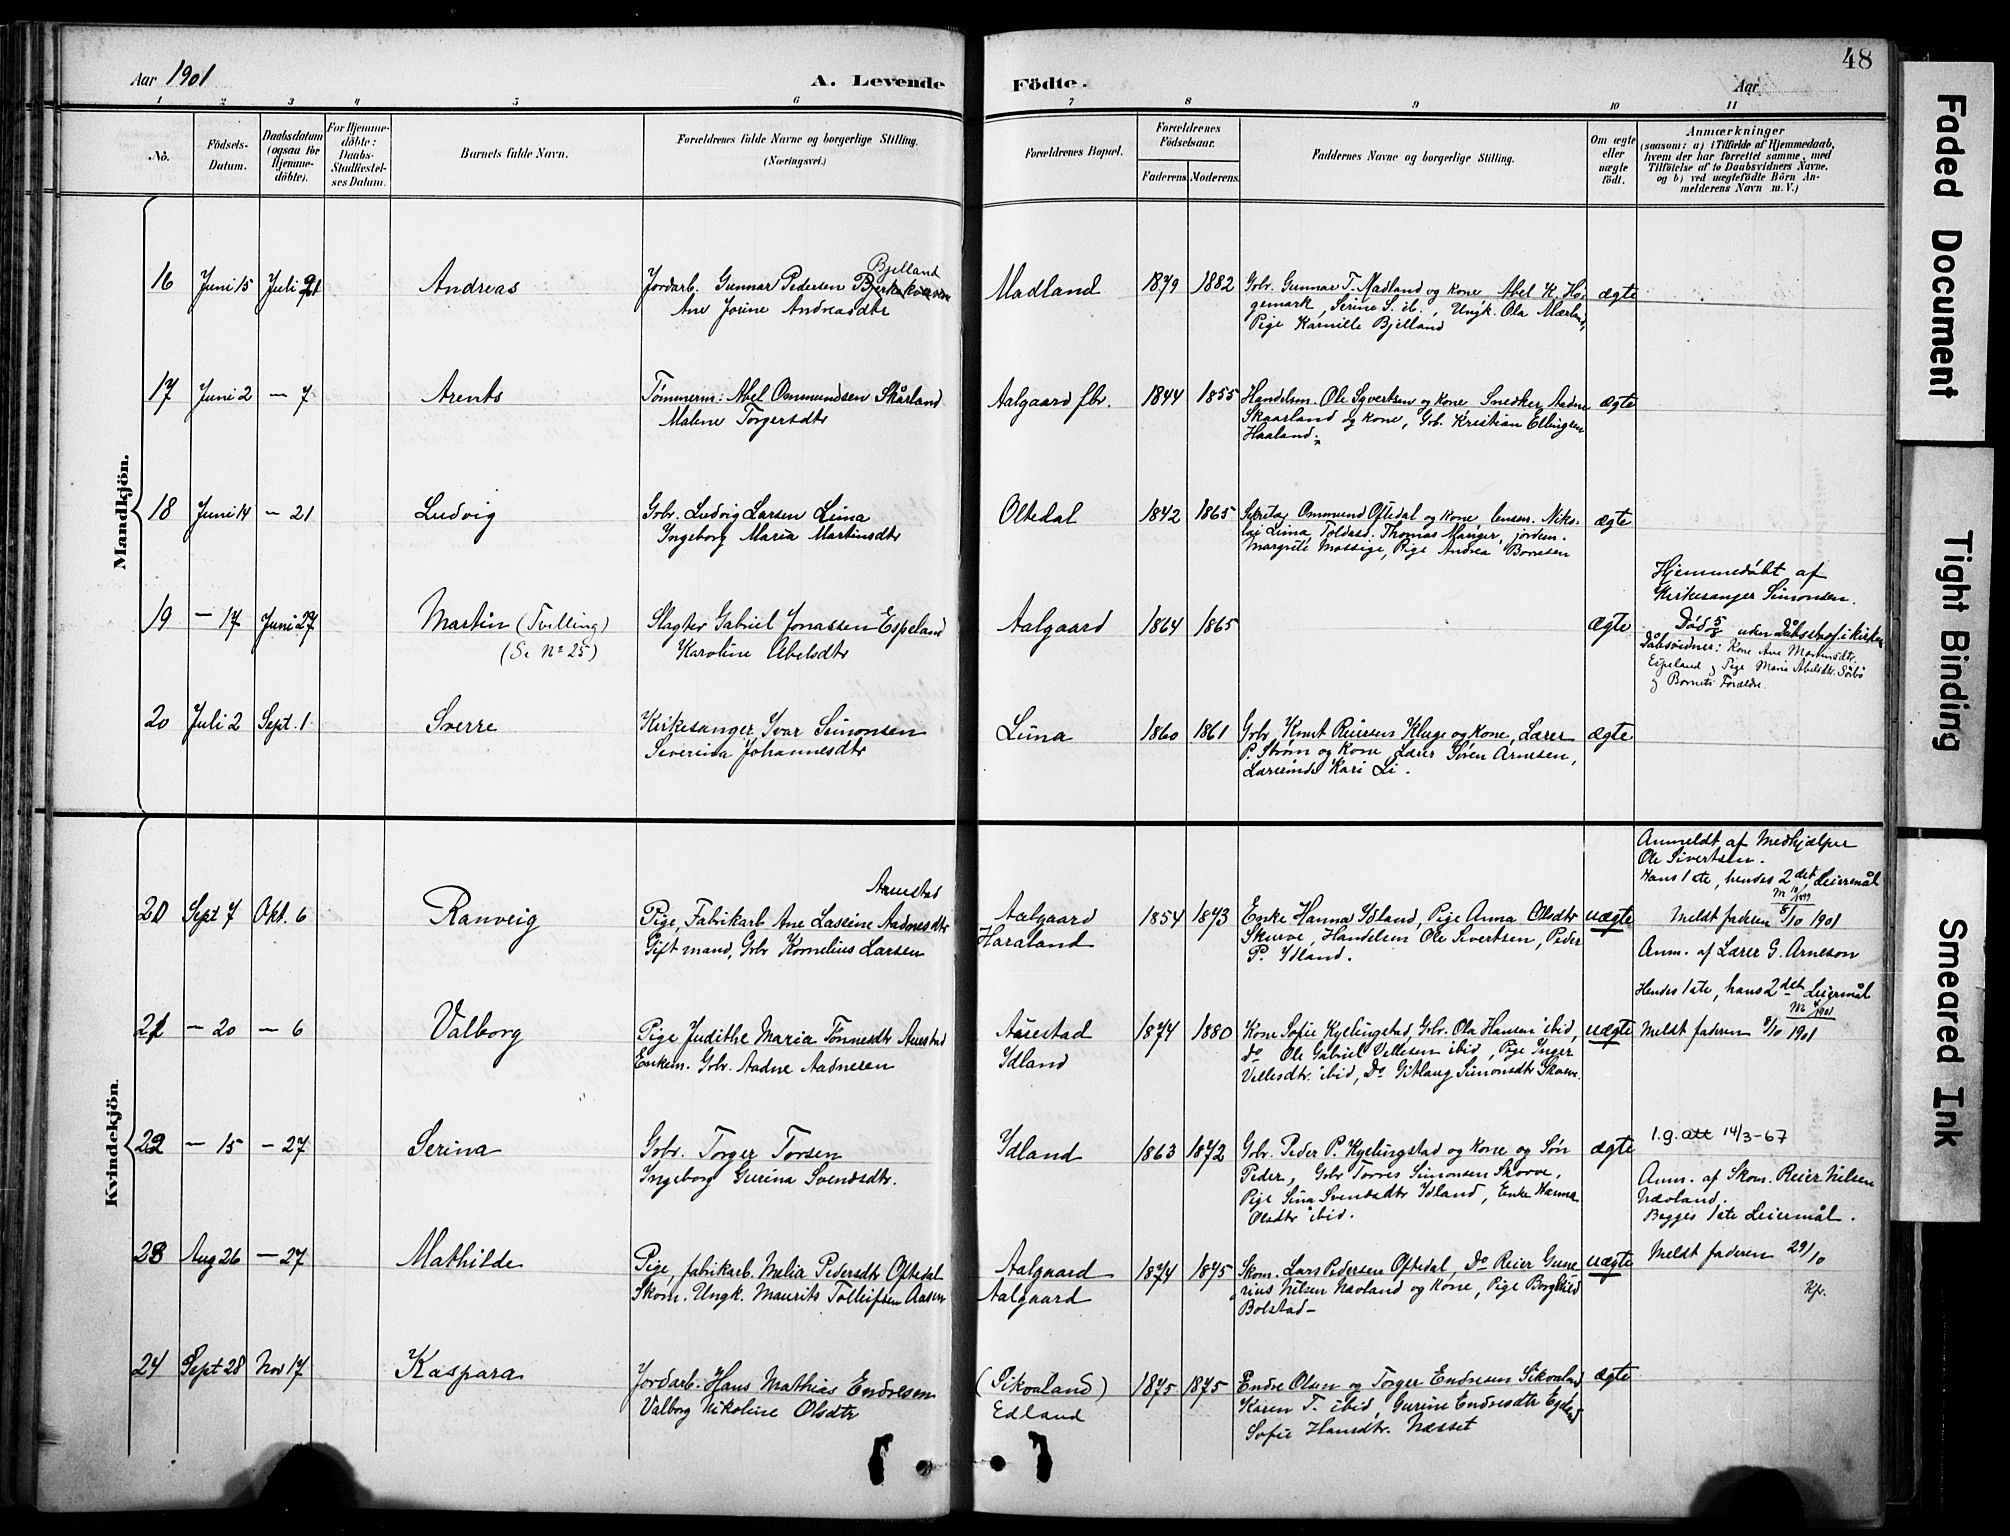 48
Aar 1901
A. Levende Födte.
Aar
1 2 3 4 5 6 7 8 9 10 11
No.
Födsels-Datum.
Daabsdatum (ogsaa for Hjemme-döbte).
For Hjemme-döbte: Daabs-Stadfæstel-ses Datum.
Barnets fulde Navn.
Forældrenes fulde Navne og borgerlige Stilling.
(Næringsvei.)
Forældrenes Bopæl.
Forældrenes Födselsaar.
Faderens Moderens.
Faddernes Navne og borgerlige Stilling.
Om ægte eller uægte födt.
Anmærkninger
(saasom: a) i Tilfælde af Hjemmedaab,
hvem der har forrettet samme, med
Tilföielse af to Daabsvidners Navne.
og b) ved uægtefödte Börn An-
melderens Navn m. V.)
Mandkjön.
16 Juni 15 Juli 21 Andreas
Bjelland
Jordarb. Gunnar Pedersen
Ane Jorine Andreasdtr
Madland 1879 1882
Gbr. Gunnar T. Madland og kone Abel K. Hø-
gemark, Serine S. ib., Ungk. Ola
Pige Karnille Bjelland
ægte
17 Juni 2 — 7 Arents
Tømmerm: Abel Ommundsen Skårland
Malene Torgersdtr
Aalgaard fbr. 1844 1855
Handelsm. Ole Syvertsen og kone Snedker Aadne
Skaarland og kone, Gbr. Kristian Ellingsen
Haaland.
ægte
18 Juni 14 — 21 Ludvig
Gbr. Ludvig Larsen Lima
Ingeborg Maria Martinsdtr
Oltedal 1842 1865
Ommund Oftedal og kone, lensm. Niko-
lai Lima, Toldasd. Thomas Manger, jordm.
Margrete Mossige, Pige Andrea Borresen
ægte
19 — 17 Juni 27 Martin (Tvilling)
(Se No 25)
Slagter Gabriel Jonassen Espeland
Karoline Abelsdtr
Aalgaard 1864 1865
ægte
Hjemmedøbt af
Kirkesanger Simonsen.
Død 5/8 uden Dåbsstadf. i kirken
Dåbsvidner: Kone Ane Martinsdtr.
Espeland og Pige Maria Abelsdtr.
og Barnets Forældre.
20 Juli 2 Sept. 1 Sverre
Kirkesanger Ivar Simonsen
Severina Johannesdtr
Lima 1860 1861
Gbr Knut Reiersen Kluge og kone, Lærer
P. Strøm og Kone, Lærer Søren Arnesen,
Lærerinde Kari Li.
ægte
Kvindekjön.
20 Sept 7 Okt. 6 Ranveig
Auestad
Pige, Fabrikarb. Ane Laseine Aadnesdtr
Gift mand, Gbr Kornelius Larsen
Aalgaard
Haraland
1854 1873
Enke Hanna Idland, Pige Anna Olsdtr
Skurve, Handelsm Ole Sivertsen, Peder
P. Idland.
uægte
Anmeldt af Medhjælper
Ole Sivertsen.
Hans 1ste, hendes 2det Leiermål
Meldt faderen 8/10 1901
21 — 20 — 6 Valborg
Pige Judithe Maria Tønnesdtr Auestad
Enkem. Gbr. Aadne Aadnesen
Auestad
Idland
1874 1880
Kone Sofie Kyllingstad, Gbr. Ola Hansen ibid,
Do Ole Gabriel Vellesen ibid, Pige Inger
Vellesdtr. ibid, Do Gitlaug Simonsdtr
uægte
Anm. af Lærer G. Arneson
Hendes 1ste, hans 2det Leiermål
Meldt faderen 8/10 1901
22 — 15 — 27 Serina
Gbr. Torger Torsen
Ingeborg Gurina Svendsdtr.
Idland 1863 1872
Gbr. Peder P. Kyllingstad og kone og Søn
Peder, Gbr Torres Simonsen Skorve,
Pige Sina Svendsdtr Idland, Enke Hanna
Olsdtr ibid.
ægte
l.g. att 14/3-67
23 Aug 26 — 27 Mathilde
Pige, fabrikarb. Melia Pedersdtr Oftedal
Skom. Ungk. Maurits Tolleifsen Aasen
Aalgaard
Aalgaard
1874 1875
Skom. Lars Pedersen Oftedal, Do Reier Gune-
rius Nilsen Nævland og kone, Pige Borghild
Bolstad—
uægte
Anm. af Skom. Reier Nilsen
Nævland.
Begges 1ste Leiermål.
Meldt faderen 29/10
24 Sept 28 Nov 17 Kaspara
Jordarb. Hans Mathias Endresen
Valborg Nikoline Olsdtr
(Sikvaland)
Edland
1875 1875
Endre Olsen og Torger Endresen Sikvaland
Karen T. ibid, Gurine Endresdtr
Sofie Hansdtr. Næsset
ægte
Faded Document
Tight Binding
Smeared Ink